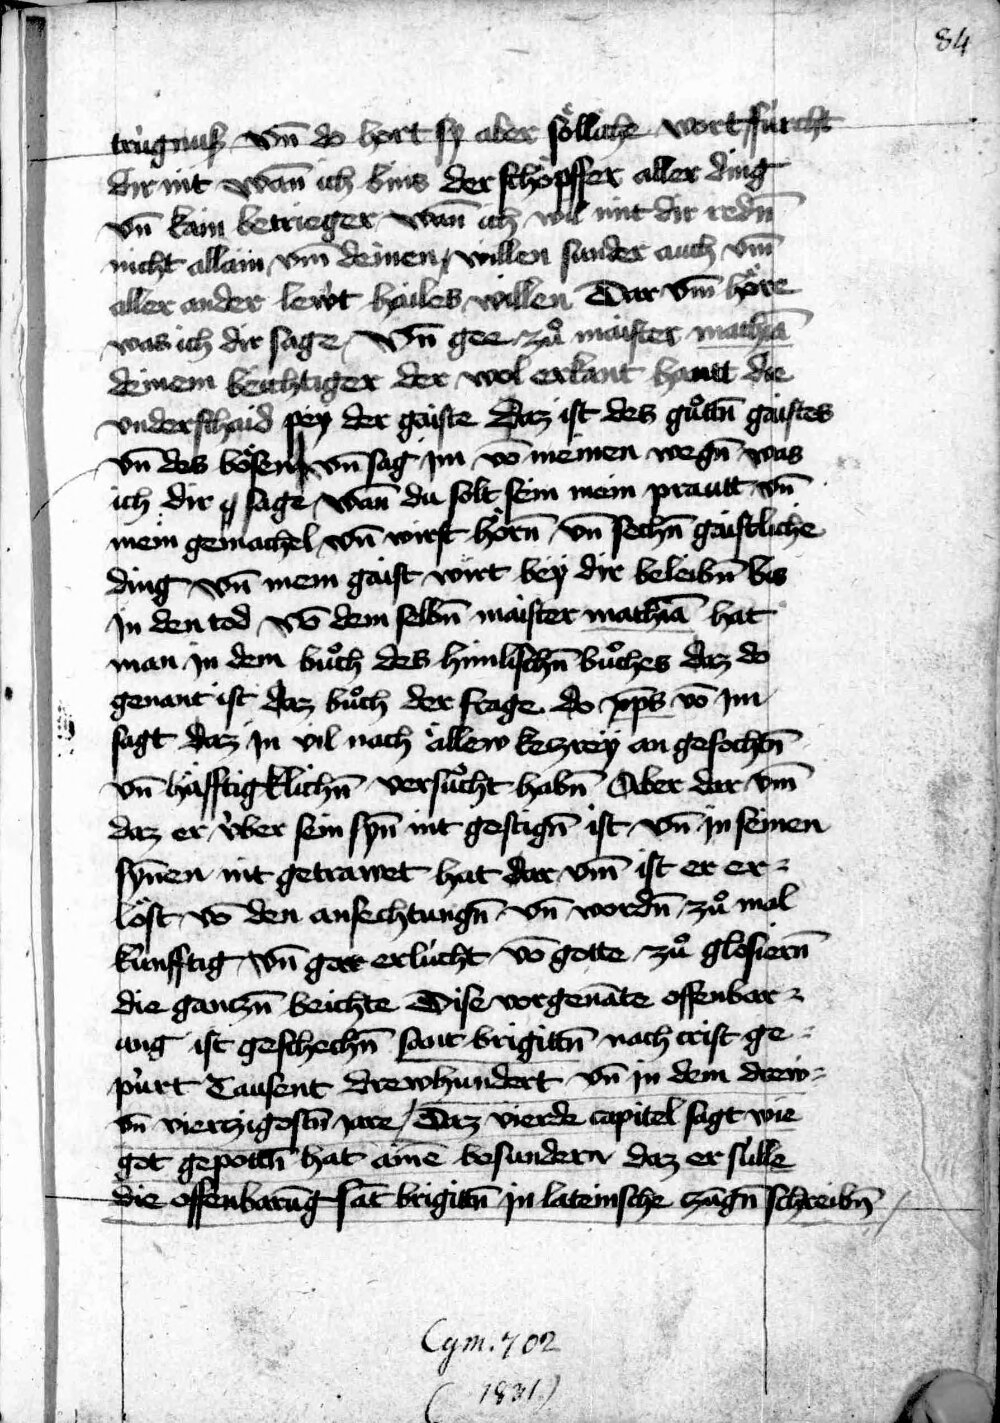 84
trùgnuß vn̄ do hort sy aber sölliche wort fürcht
dir nit wan̄ ich bins der schöpffer aller ding
vn̄ kain betrieger wan̄ ich wil mit dir redn̄
nicht allain vm̄ deinen willen sunder auch vm̄
aller ander lewt hailes willen Dar vm̄ höre
was ich dir sage vn̄ gee zů maister mathiā
deinem beichtiger der wol erkant hautt die
vnderschaid pey der gaiste Daz ist des gůttn̄ gaistes
vn̄ des bösen vn̄ sag im vō meinen wegn̄ was
ich dir sage wan̄ du solt sein mein prautt vn̄
mein gemachel vn̄ wirst hörn̄ vn̄ sechn̄ gaistliche
ding vn̄ mein gaist wirt bey dir beleibn̄ bis
in den tod Vō dem selbn̄ maister mathiā hat
man in dem bůch des himlischn̄ bůches daz do
genant ist daz bůch der frage do xp̄s vō im
sagt daz in vil nach allew ketzrey an gefochtn̄
vn̄ häfftigklichn̄ versůcht habn̄ Aber dar vm̄
daz er v̈ber sein syn̄ nit gestign̄ ist vn̄ in seinen
syn̄en nit getrawet hat dar vm̄ ist er er=
löst vō den anfechtungn̄ vn̄ wordn̄ zů mal
künfftig vn̄ erlücht vō gotte zů glosiern̄
die gantzn̄ beichte Dise vorgenāte offenbar=
ung ist geschechn̄ sant brigittn̄ nach crist ge=
pürt Tausent drewhundert vn̄ in dem drew=
vn̄ viertzigostn̄ jare Daz vierde capitel sagt wie
got gepottn̄ hat aīnē besundern daz er sülle
die offenbarūg sāt brigittn̄ in lateinsche zūgn̄ schreibn̄
Cgm. 702
(1831.)